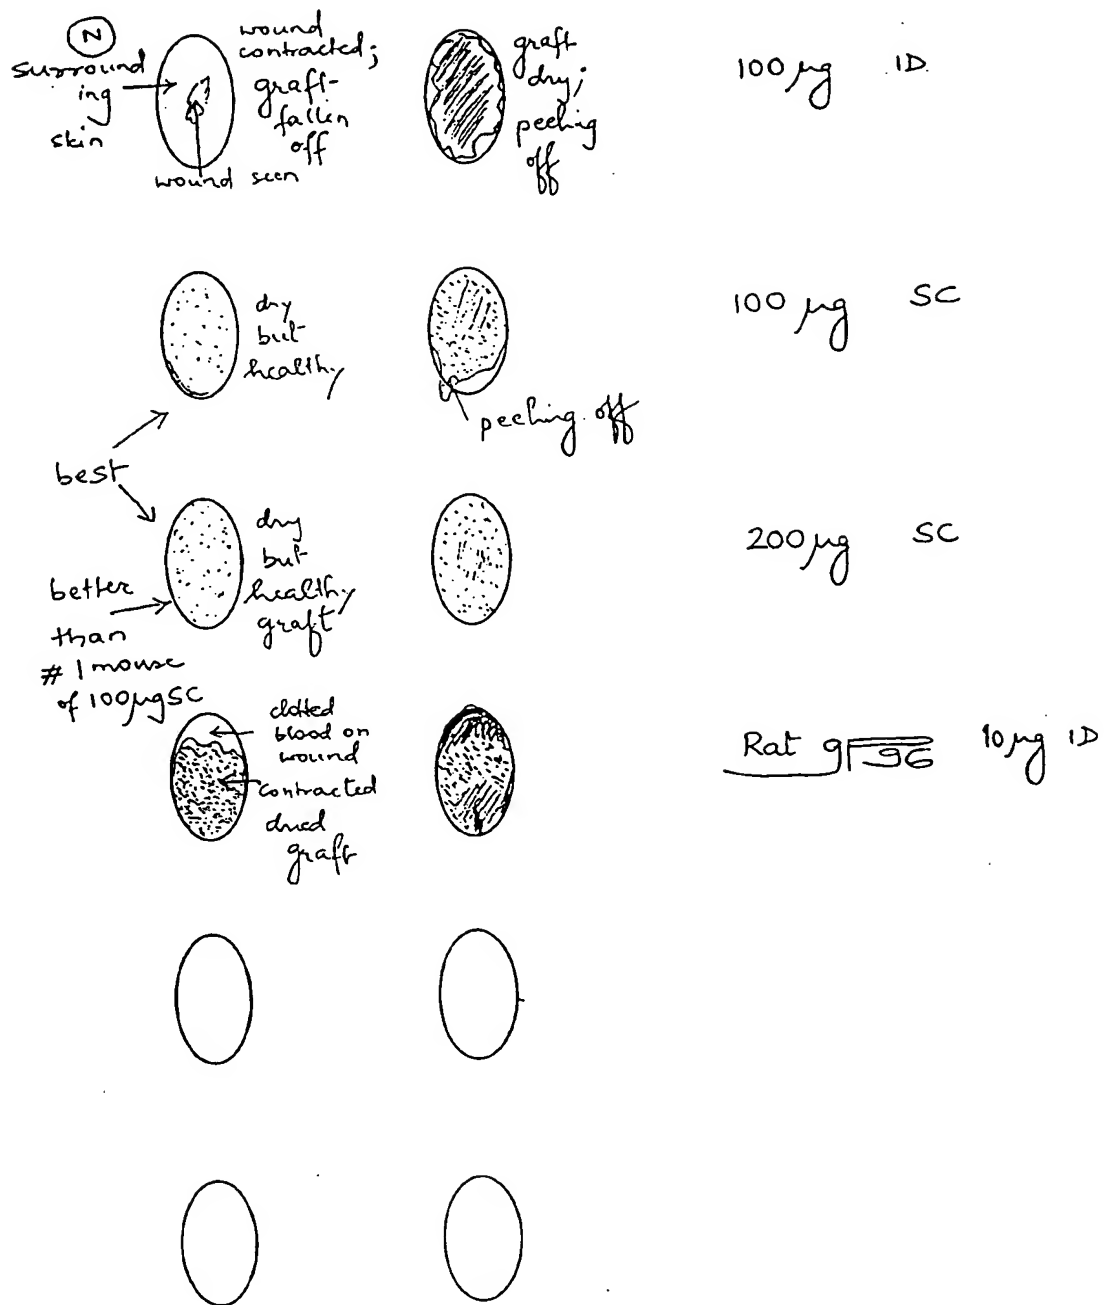 N
surround
ing
skin
wound
contracted;
graft
fallen
off
wound seen
graft
dry;
peeling
off
100 µg ID
dry
but
healthy
peeling off
100 µg SC
best
dry
but
healthy
graft
200 µg SC
better
than
# 1 mouse
of 100µg SC
clotted
blood on
wound
contracted
dried
graft
Rat gp96 10 µg ID